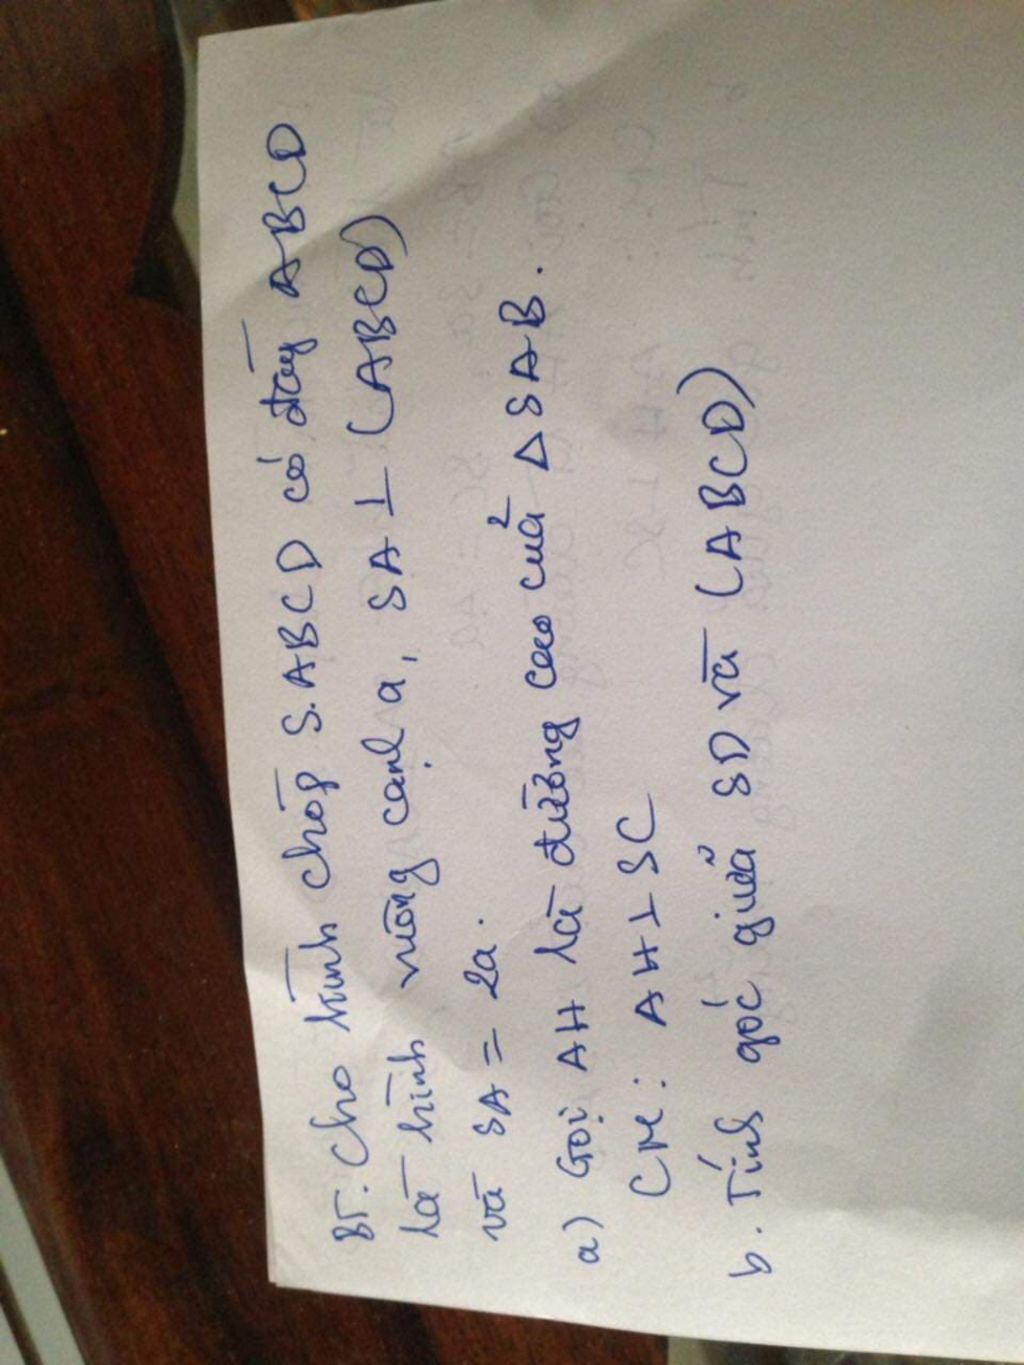 BT. Cho hình chóp S.ABCD có đáy ABCD
là hình vuông cạnh a, SA ⊥ (ABCD)
và SA = 2a.
a) Gọi AH là đường cao của Δ SAB.
CM: AH ⊥ SC
b. Tính góc giữa SD và (ABCD)